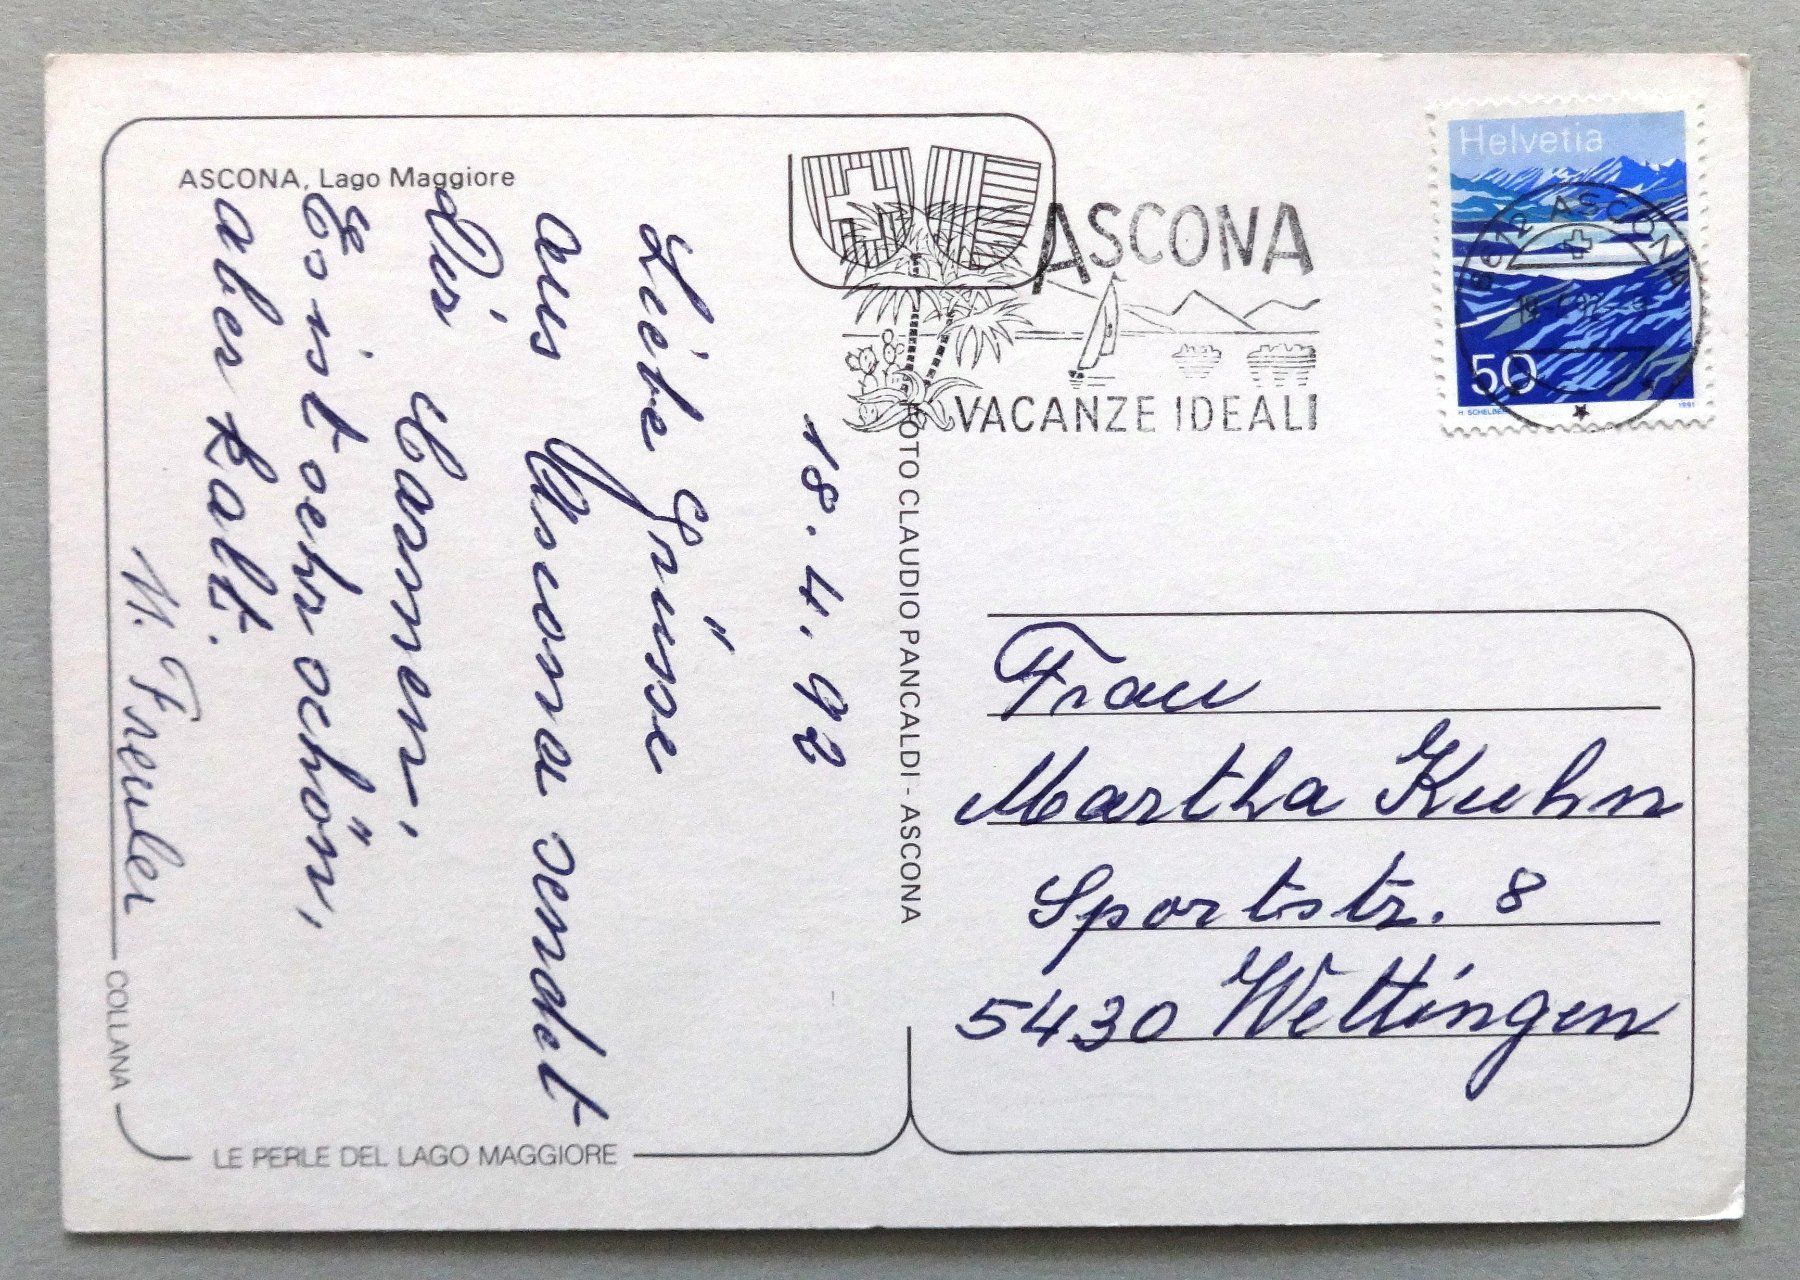 ASCONA, Lago Maggiore
18.4.92
Liebe Grüsse
aus Ascona sendet
Dir Carmen.
Es ist sehr schön,
aber kalt.
Freuler
COLLANA
LE PERLE DEL LAGO MAGGIORE
FOTO CLAUDIO PANCALDI - ASCONA
ASCONA
VACANZE IDEALI
Helvetia
6612 ASCONA
50
H. SCHELBERT
1991
Frau
Martha Kuhn
Sportstr. 8
5430 Wettingen